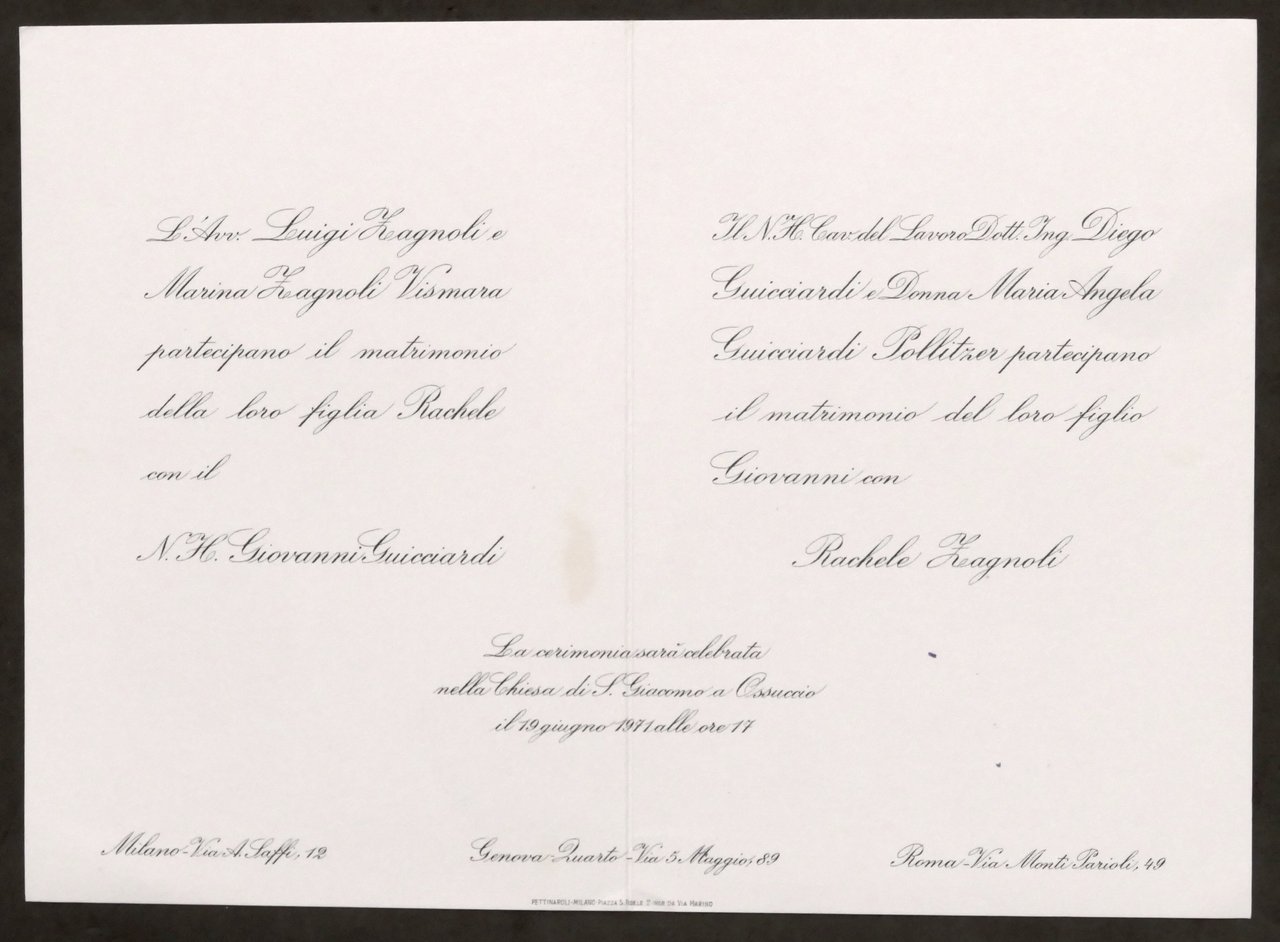 L'Avv. Luigi Zagnoli e
Marina Zagnoli Vismara
partecipano il matrimonio
della loro figlia Rachele
con il
N.H. Giovanni Guicciardi
Il N.H. Cav. del Lavoro Dott. Ing. Diego
Guicciardi e Donna Maria Angela
Guicciardi Pollitzer partecipano
il matrimonio del loro figlio
Giovanni con
Rachele Zagnoli
La cerimonia sarà celebrata
nella Chiesa di S. Giacomo a Ossuccio
il 19 giugno 1971 alle ore 17
Milano - Via A. Saffi, 12
Genova-Quarto - Via 5 Maggio, 89
Roma - Via Monti Parioli, 49
PETTINAROLI-MILANO PIAZZA S. FEDELE 2 DA VIA MARINO